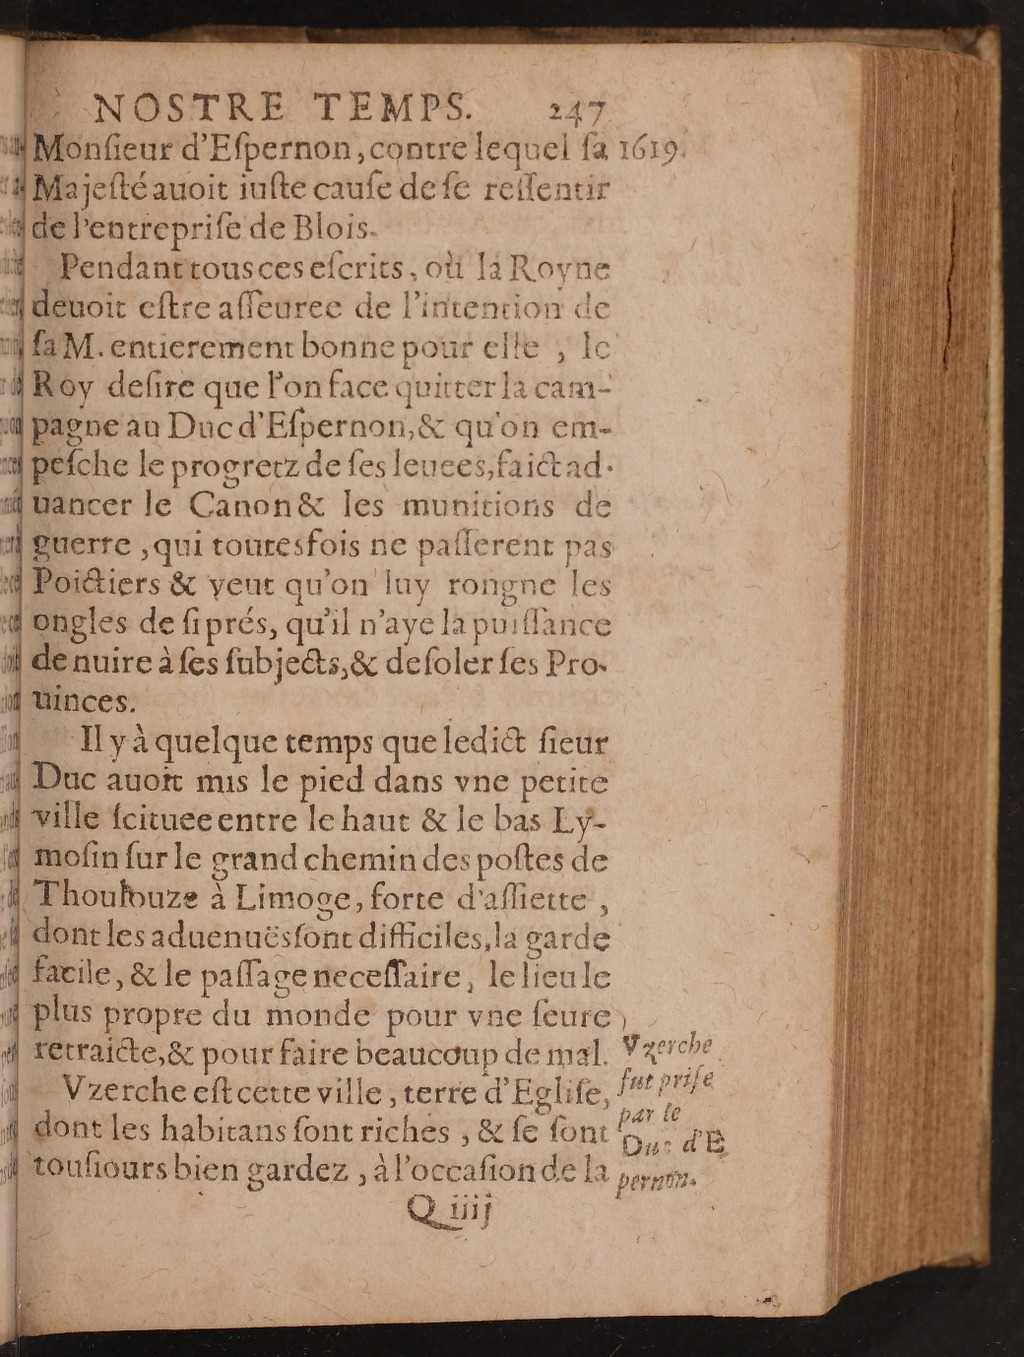 NOSTRE TEMPS. 247
Monſieur d'Eſpernon, contre lequel ſa 1619.
Majeſté auoit iuſte cauſe de ſe reſſentir
de l'entrepriſe de Blois.
Pendant tous ces eſcrits, où la Royne
deuoit eſtre aſſeuree de l'intention de
ſa M. entierement bonne pour elle, le
Roy deſire que l'on face quitter la cam-
pagne au Duc d'Eſpernon, & qu'on em-
peſche le progretz de ſes leuees, faict ad-
uancer le Canon & les munitions de
guerre, qui toutesfois ne paſſerent pas
Poictiers & veut qu'on luy rongne les
ongles de ſi prés, qu'il n'aye la puiſſance
de nuire à ſes ſubjects, & deſoler ſes Pro-
uinces.
Il y à quelque temps que ledict ſieur
Duc auoit mis le pied dans vne petite
ville ſcituee entre le haut & le bas Ly-
moſin ſur le grand chemin des poſtes de
Thoulouze à Limoge, forte d'aſſiette,
dont les aduenuës ſont difficiles, la garde
facile, & le paſſage neceſſaire, le lieu le
plus propre du monde pour vne ſeure
retraicte, & pour faire beaucoup de mal.
Vzerche eſt cette ville, terre d'Egliſe,
dont les habitans ſont riches, & ſe ſont
touſiours bien gardez, à l'occaſion de la
Vzerche
fut priſe
par le
Duc d'E
pernon.
Q iiij